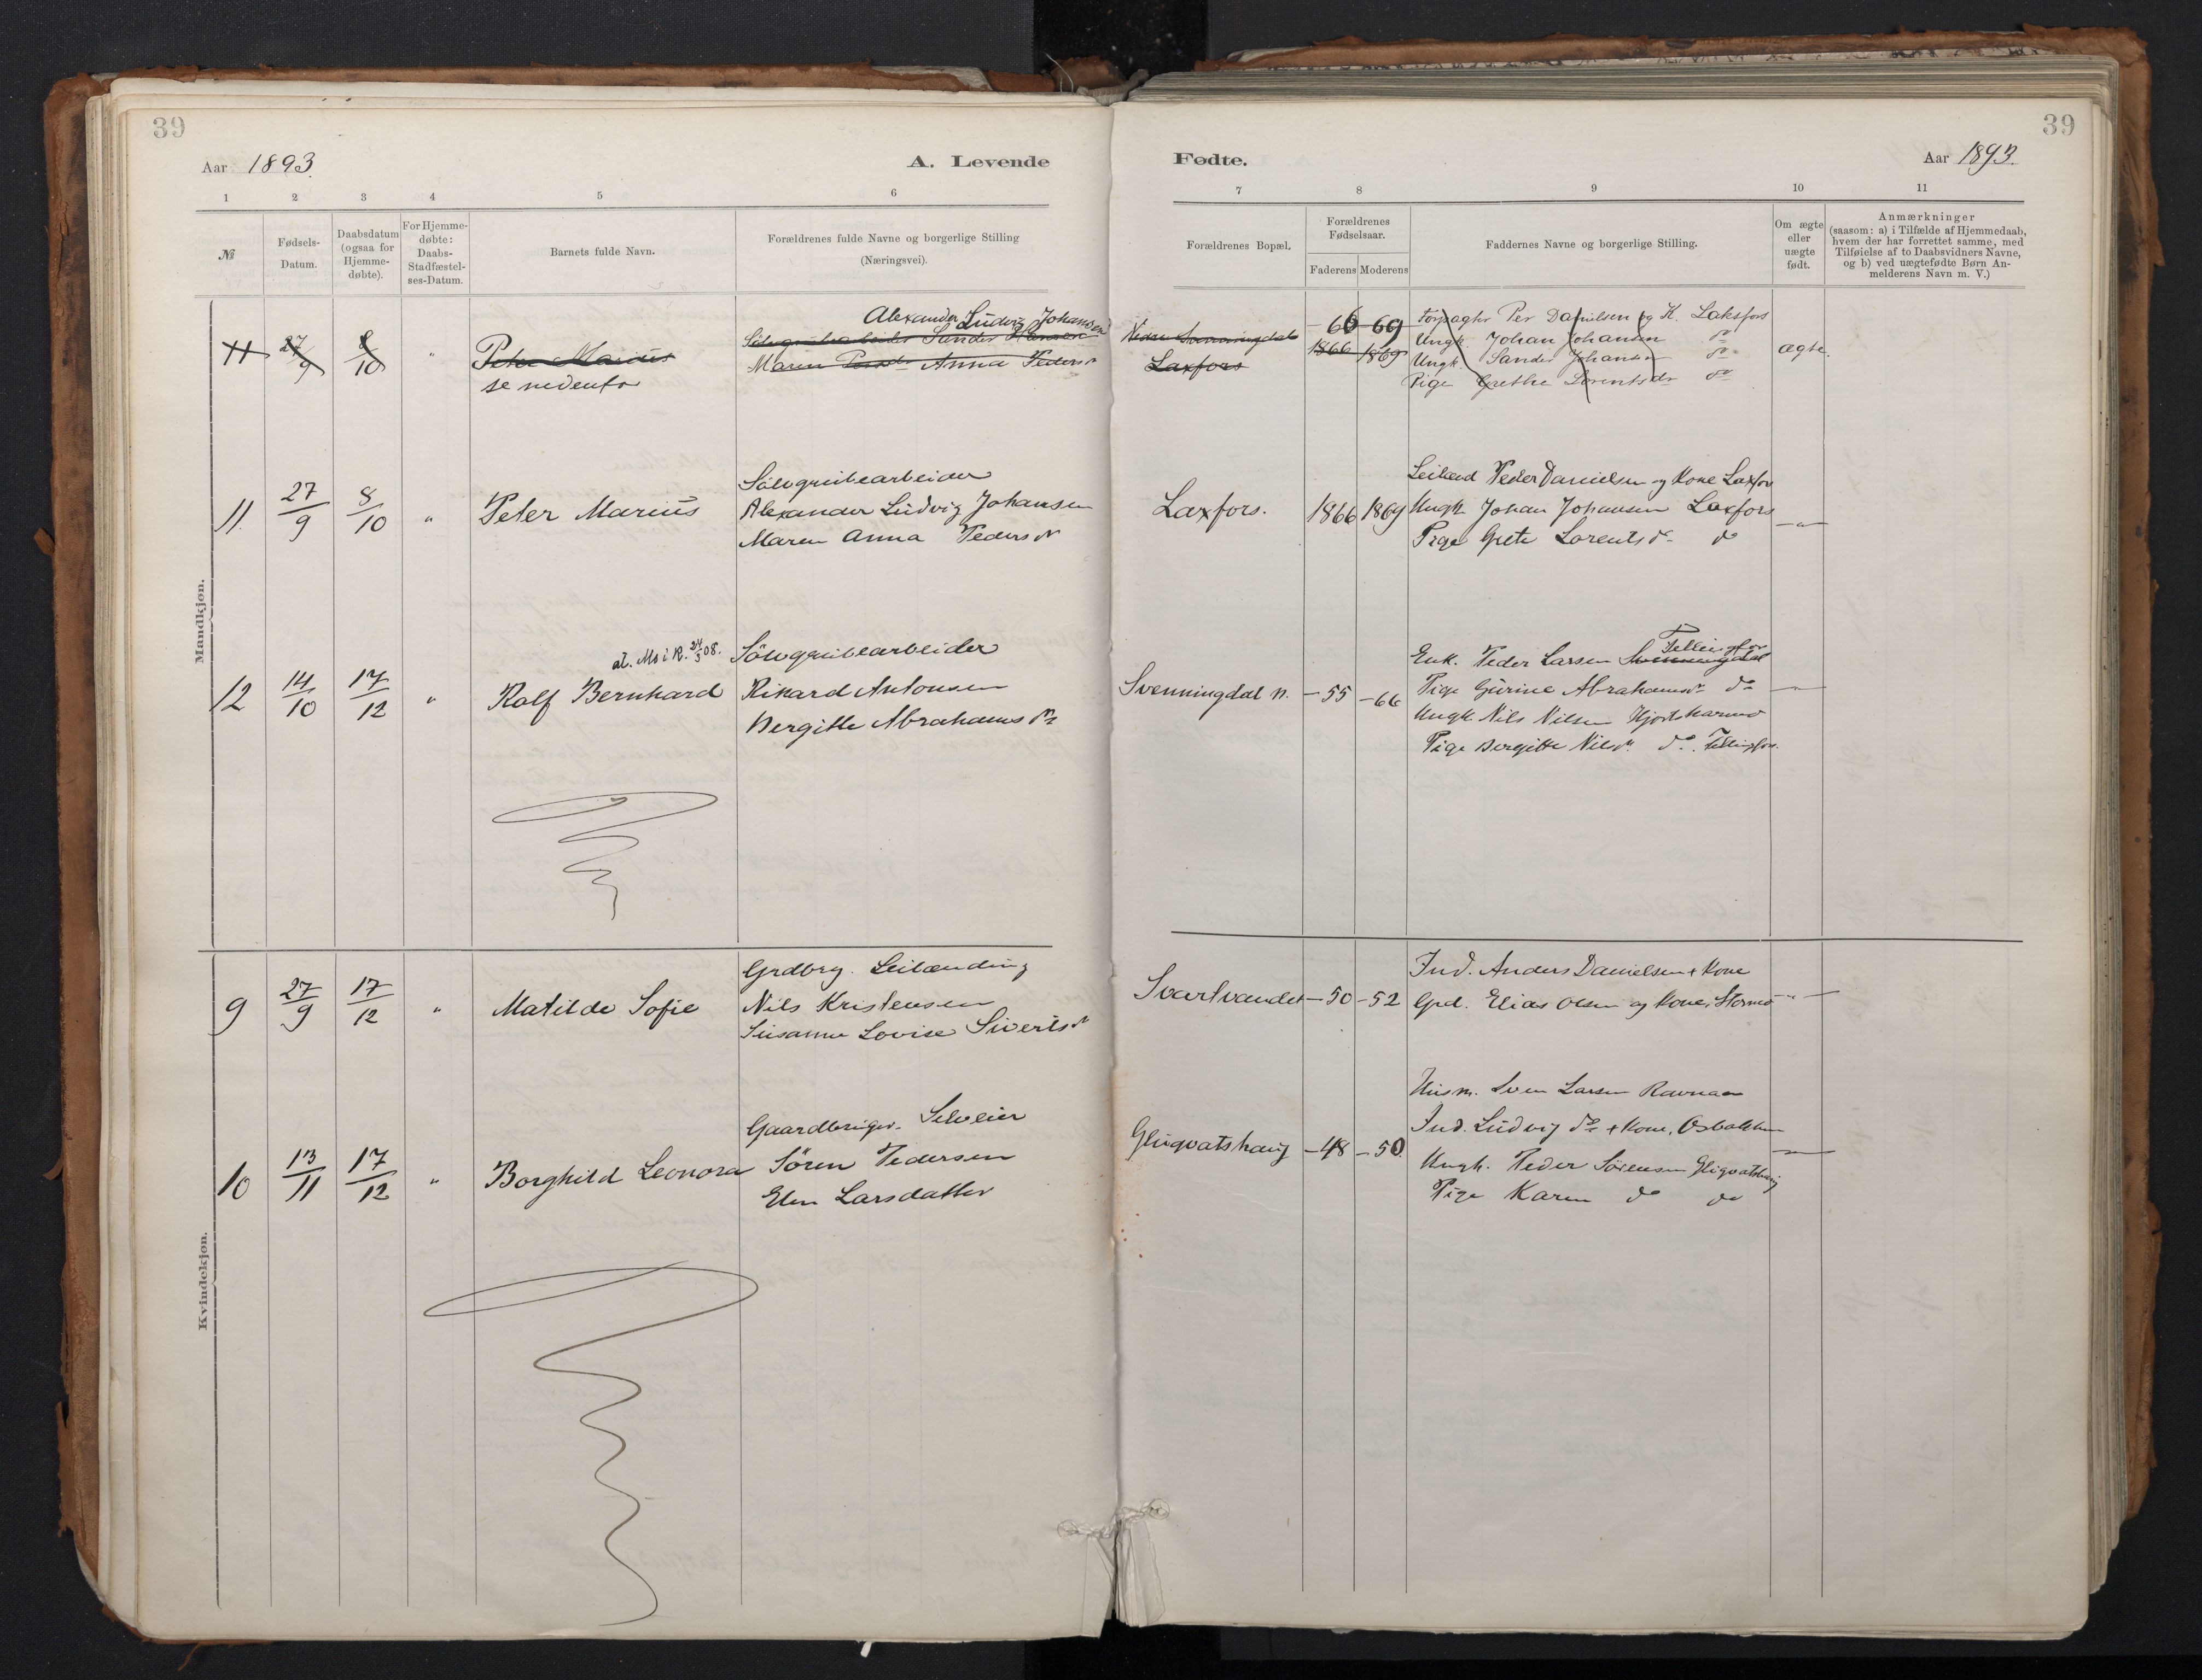 39
Aar 1893.
A. Levende
1 2 3 4 5 6
№
Fødsels-Datum.
Daabsdatum (ogsaa for Hjemme-døbte).
For Hjemme-døbte: Daabs-Stadfæstel-ses-Datum.
Barnets fulde Navn.
Forældrenes fulde Navne og borgerlige Stilling (Næringsvei).
Mandkjøn.
Alexander Ludvig Johansen
11 27/9 8/10 " Peter Marius
Maren Anna Pedersdr
se nedenfor
Sølvgrubearbeider
11. 27/9 8/10 " Peter Marius Alexander Ludvig Johansen
Maren Anna Pedersdr
at. Ms i R. 24/3 08. Sølvgrubearbeider
12 14/10 17/12 " Rolf Bernhard Rikard Antonsen
Bergitte Abrahamsdr
Kvindekjøn.
Grdbrg. Leilænding
9 27/9 17/12 " Matilde Sofie Nils Kristensen
Susanne Lovise Sivertsdr
Gaardbruger. Selveier
10 13/11 17/12 " Borghild Leonora Søren Pedersen
Elen Larsdatter
39
Fødte.
Aar 1893.
7 8 9 10 11
Forældrenes Bopæl.
Forældrenes Fødselsaar.
Faderens Moderens
Faddernes Navne og borgerlige Stilling.
Om ægte eller uægte født.
Anmærkninger (saasom: a) i Tilfælde af Hjemmedaab, hvem der har forrettet samme, med Tilføielse af to Daabsvidners Navne, og b) ved uægtefødte Børn Anmelderens Navn m. V.)
Nedre Svenningdal - 66 - 69 Forpagter Per Danielsen og K. Laksfors
Laxfors 1866 1869 Ungk. Johan Johansen do ægte.
Ungk. Sander Johansen do
Pige Grethe Lorentsdr do
Leilænd Peder Danielsen og Kone Laxfors
Laxfors. 1866 1869 Ungk. Johan Johansen Laxfors —"—
Pige Grete Lorentsdr do
Enk. Peder Larsen Svenningdal Fellingfors
Svenningdal n. - 55 - 66 Pige Gurine Abrahamsdr do —"—
Ungk. Nils Nilsen Hjortskarmo
Pige Bergitte Nilsdr do. Fellingfors.
Ind. Anders Danielsen & Kone
Svartvandet - 50 - 52 Grd. Elias Olsen og Kone, Stormo —"—
Husm. Sven Larsen Ravnaa
Ind. Ludvig do & Kone,
Glugvatshaug - 48 - 50. Ungk. Peder Sørensen Glugvatshaug —"—
Pige Karen do do